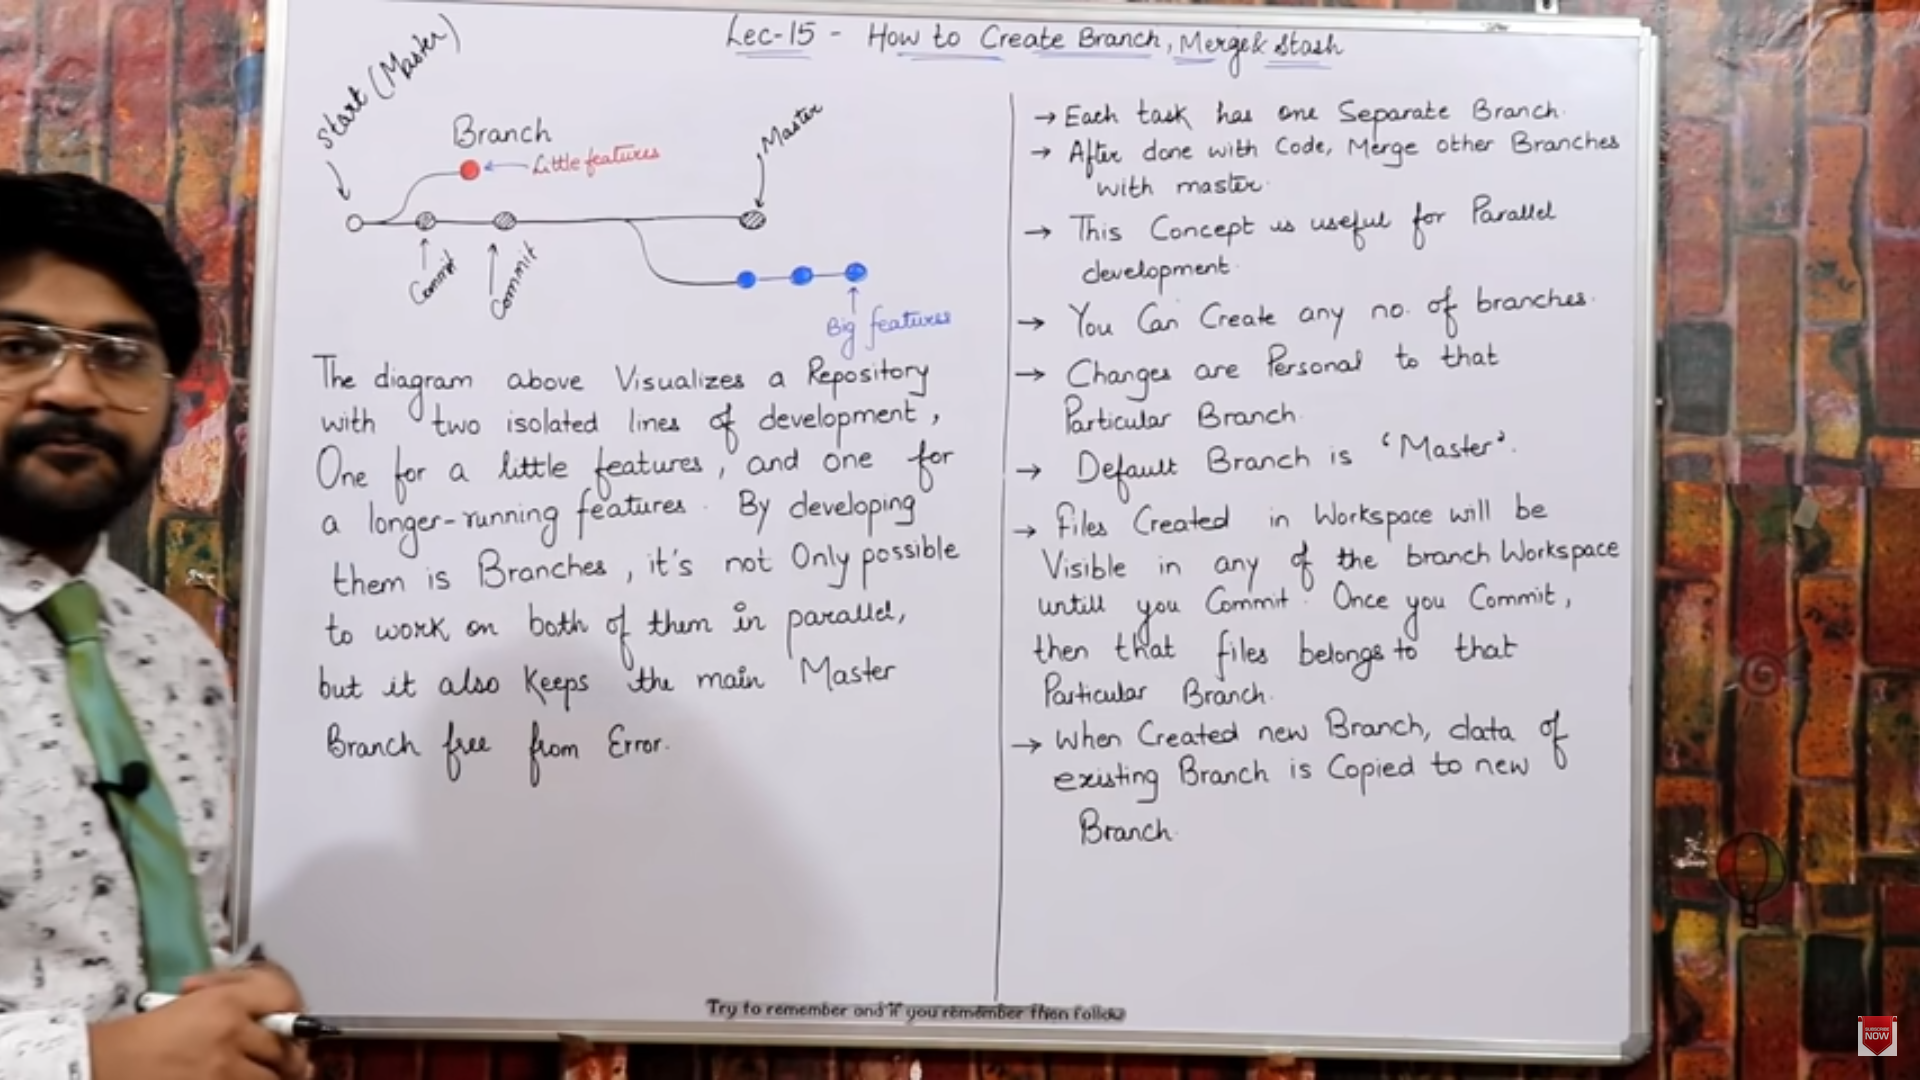 Lec-15 - How to Create Branch, Merge & Stash
Start (Master)
Branch
Little features
Master
Commit
Commit
Big features
The diagram above Visualizes a Repository
with two isolated lines of development,
One for a little features, and one for
a longer-running features. By developing
them is Branches, it's not Only possible
to work on both of them in parallel,
but it also Keeps the main Master
Branch free from Error.
→ Each task has one Separate Branch.
→ After done with Code, Merge other Branches
with master.
→ This Concept is useful for Parallel
development.
→ You Can Create any no. of branches.
→ Changes are Personal to that
Particular Branch.
→ Default Branch is 'Master'.
→ Files Created in Workspace will be
Visible in any of the branch Workspace
untill you Commit. Once you Commit,
then that files belongs to that
Particular Branch.
→ When Created new Branch, data of
existing Branch is Copied to new
Branch.
Try to remember and if you remember then follow
SUBSCRIBE
NOW